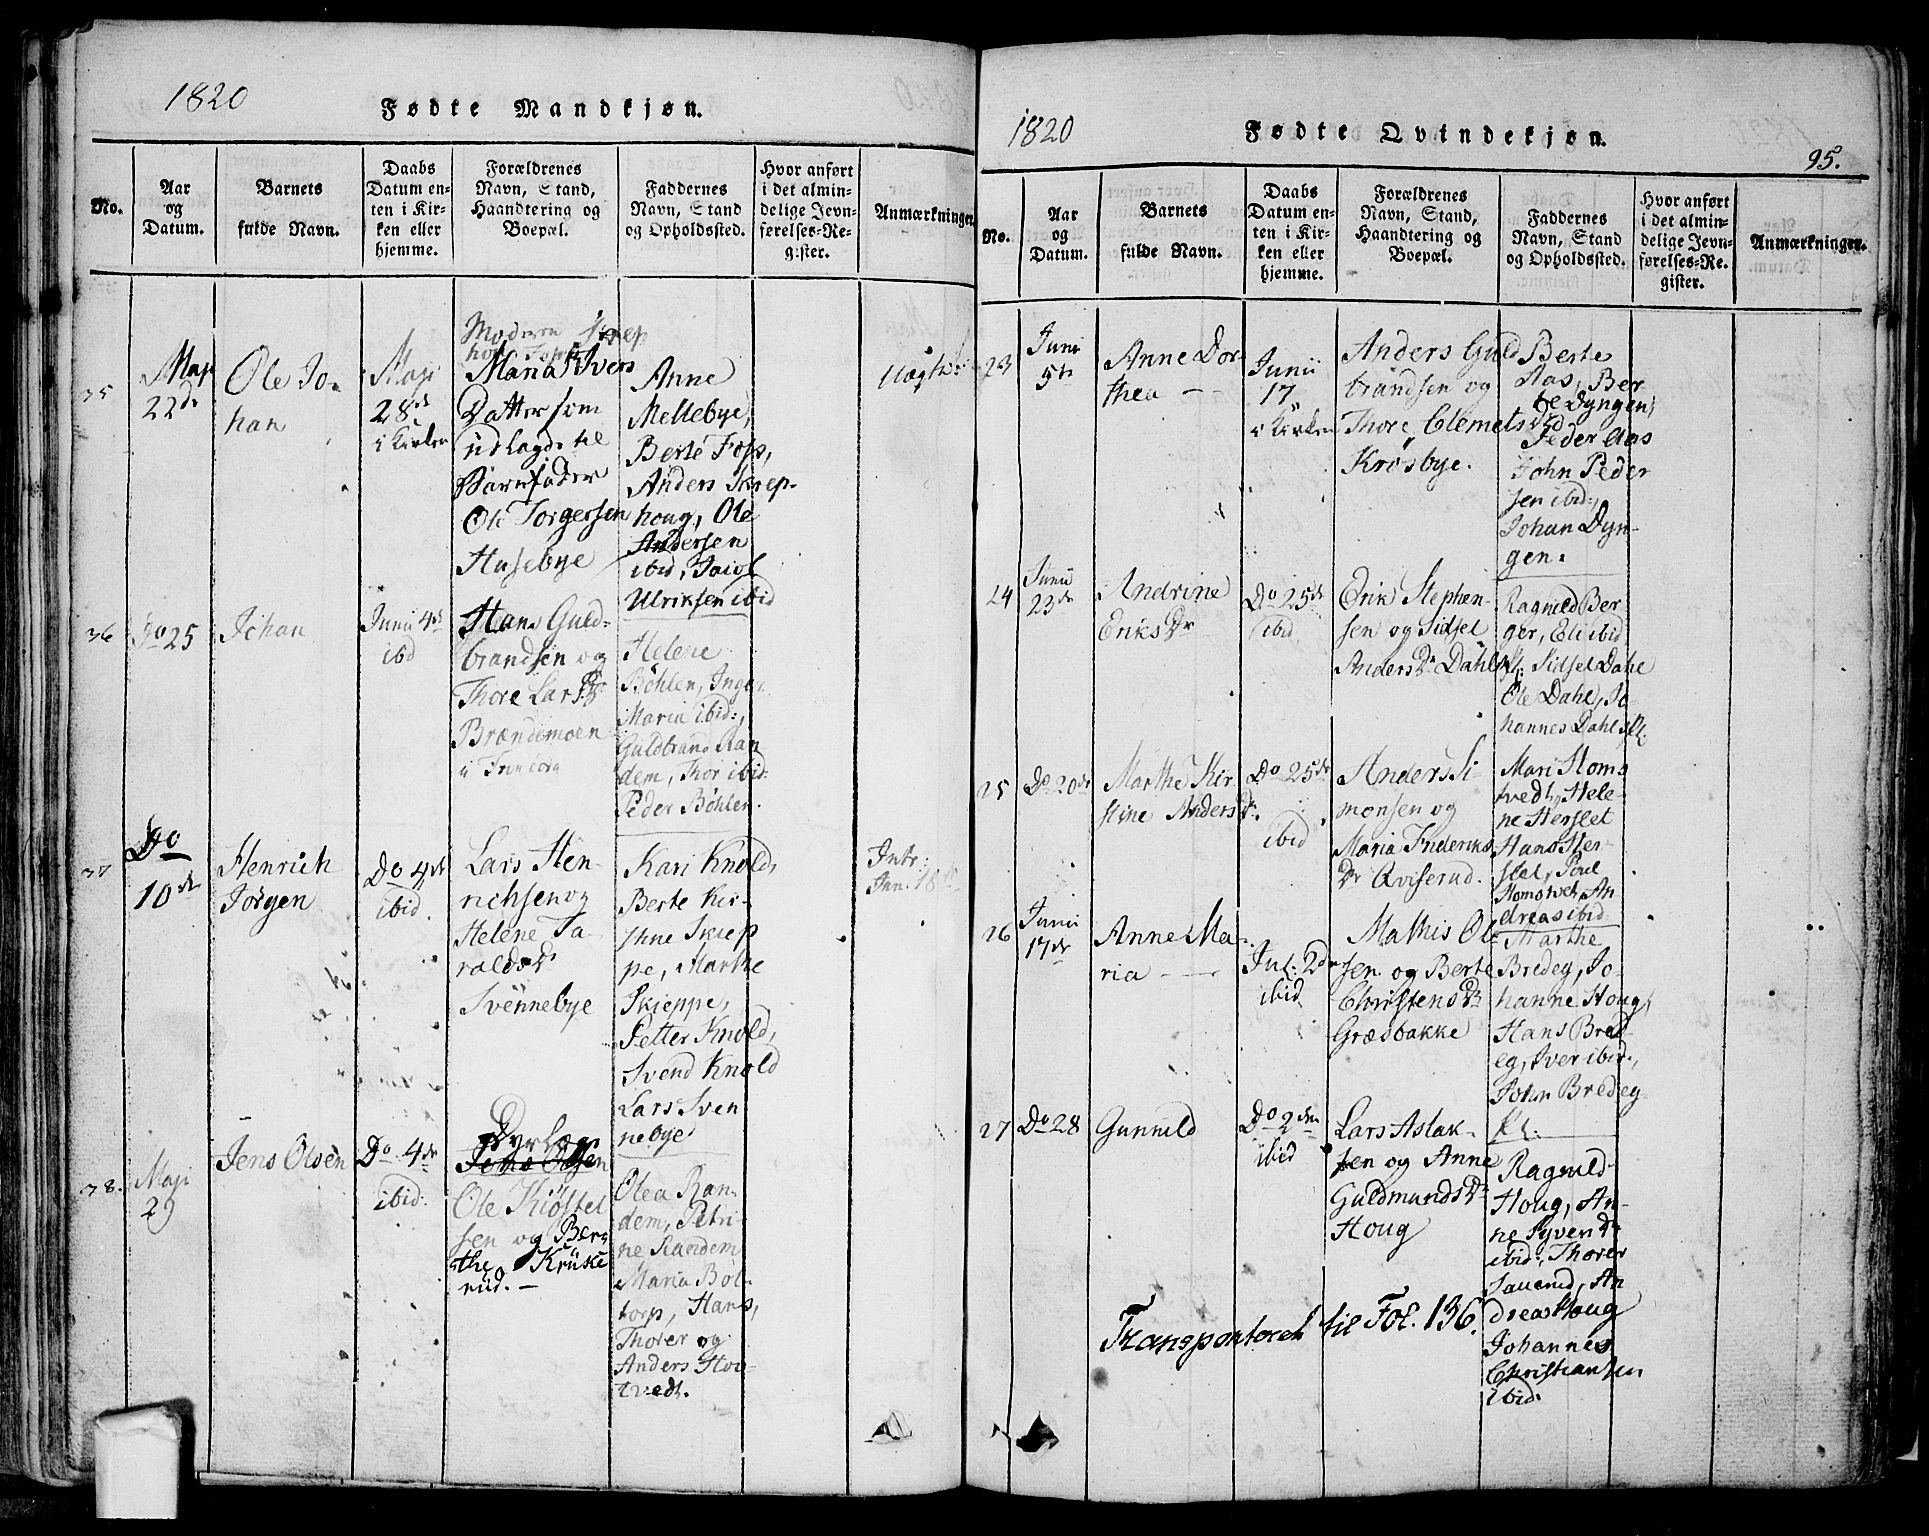 1820
Fødte Mandkjøn.
No.
Aar
og
Datum.
Barnets
fulde Navn.
Daabs
Datum en-
ten i Kir-
ken eller
hjemme.
Forældrenes
Navn, Stand,
Haandtering og
Boepæl.
Faddernes
Navn, Stand
og Opholdssted.
Hvor anført
i det almin-
delige Jevn-
førelses-Re-
gister.
Anmærkninger.
35
Maji
22de
Ole Jo-
han
Maji
28de
i Kirken
Moderen
Maria Ivers
Datter som
udlagde til
Barnefader
Ole Torgersen
Husebye
Anne
Mellebye,
Berte Foss,
Anders Skrep-
houg, Ole
Andersen
ibid, Jacob
Ulriksen ibid
Uægte
36
Do 25
Johan
Junii 4de
ibd
Hans Guld-
brandsen og
Thore Lars Dr
Brændemoen
i
Helene
Böhlen, Inger
Maria ibid:,
Guldbrand Ran
dem, Thor ibid:
Peder Böhlen.
37
Do
10de
Henrich
Jörgen
Do 4de
ibid.
Lars Hen-
richsen og
Helene Ta-
raldsdr
Svennebye
Kari Knold,
Berte Kir-
stine Skiep
pe, Marthe
Skieppe,
Petter Knold,
Svend Knold
Lars Sven
nebye
Intr:
38.
Maji
29
Jens Olsen
Do 4de
ibid:
Ole Kiöstel
sen og Ber
the Krüke
rud. —
Olea Ran-
dem, Petri-
ne Randem
Maria Böl-
torp, Hans,
Thorer og
Anders Hou-
tvedt.
1820
Fødte Qvindekjøn.
95.
No.
Aar
og
Datum.
Barnets
fulde Navn.
Daabs
Datum en-
ten i Kir-
ken eller
hjemme.
Forældrenes
Navn, Stand,
Haandtering og
Boepæl.
Faddernes
Navn, Stand
og Opholdssted.
Hvor anført
i det almin-
delige Jevn-
førelses-Re-
gister.
Anmærkninger.
23
Junii
5te
Anne Dor-
thea —
Junii
17
i Kirken
Anders Guld
brandsen og
Thore Clemets Dr
Krosbye.
Berte
Aas, Ber
te Dyngen,
Peder Aas
John Peder
sen ibid:,
Johan Dyn-
gen.
24
Junii
23de
Andrine
Eriks Dr
Do 25de
ibid
Erik Stephen-
sen og Sidsel
Anders Dr Dahls Pl:
Ragnild Ber
ger, Eli ibid
Sidsel Dahl
Ole Dahl, Jo
hannes Dahls Pl:
25
Do 20de
Marthe Kir
stine Anders Dr.
Do 25de
ibid
Anders Si-
monsen og
Maria Frideriks
Dr Qviserud.
Mari Homs
tvedt, Hele-
ne Herslet
Hans Her-
slet, Poul
Homstvet, An
dreas ibid
26
Junii
17de
Anne Ma-
ria — —
Jul: 2de
ibid
Mathis Ol
sen og Berte
Christens Dr
Græsbakke
Marthe
Bredeg, Jo-
hanne Houg,
Hans Bred-
eg, Iver ibid:,
John Bredeg
Pl.
27
Do 28
Gunnild
Do 2den
ibid
Lars Aslak-
sen og Anne
Guldmunds Dr
Houg
Ragnild
Houg, An-
ne Syver Dr
ibid:, Thorer
, An
dreas Houg
Johannes
Christiansen
ibid:
Transporteret til Fol. 136.